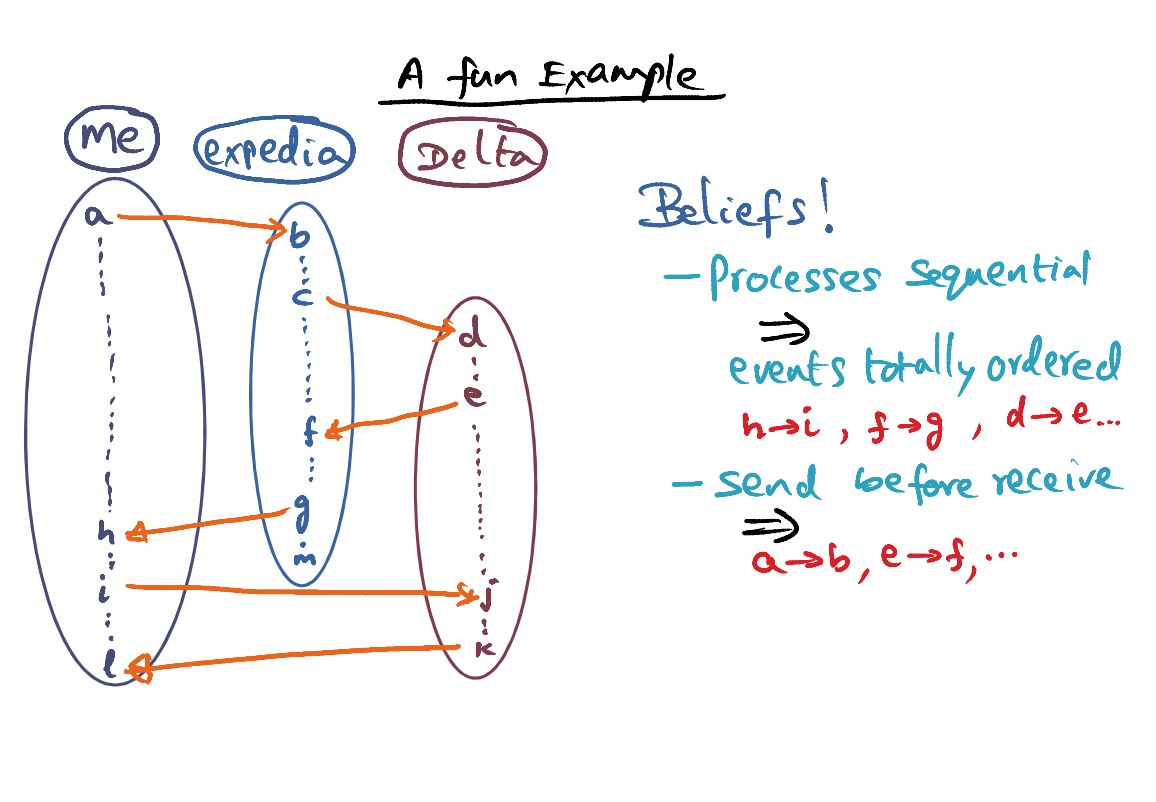 A fun Example
Me expedia Delta
a
b
c
d
e
f
g
h
m
i
j
k
l
Beliefs!
– Processes sequential
⇒
events totally ordered
h→i, f→g, d→e...
– send before receive
⇒
a→b, e→f, ...